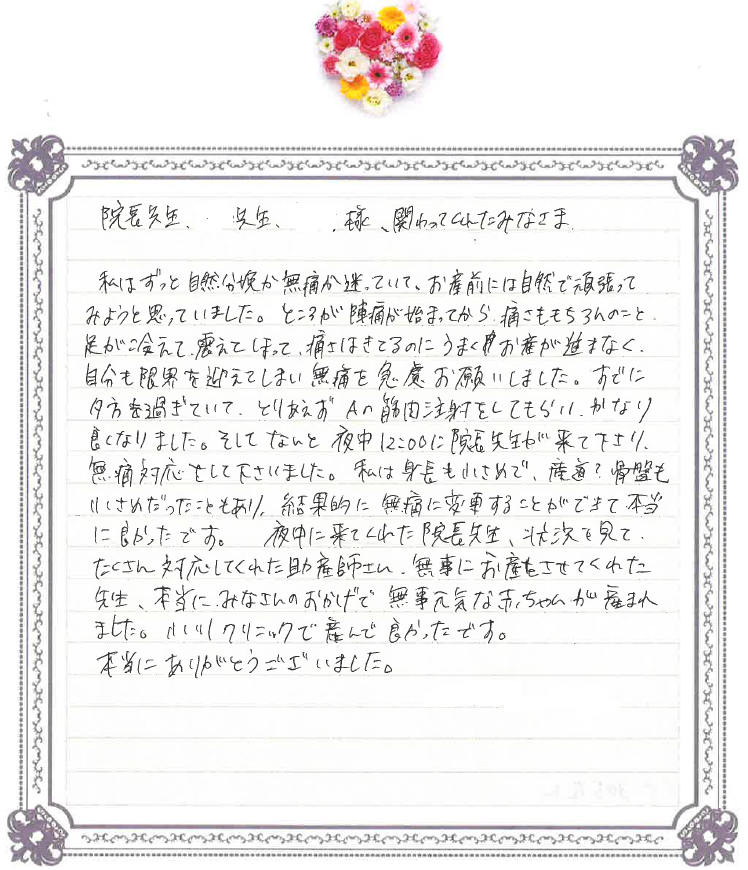 院長先生、　　先生、　　様、関わってくれたみなさま
私はずっと自然分娩か無痛か迷っていて、お産前には自然で頑張って
みようと思っていました。ところが陣痛が始まってから、痛さももちろんのこと、
足が冷えて、震えてしまって、痛さはきてるのにうまくお産が進まなく、
自分も限界を迎えてしまい無痛を急慮お願いしました。すでに
夕方を過ぎていて、とりあえずAの筋肉注射をしてもらい、かなり
良くなりました。そしてなんと夜中12:00に院長先生が来て下さり、
無痛対応をして下さいました。私は身長も小さめで、産道?骨盤も
小さめだったこともあり、結果的に無痛に変更することができて本当
に良かったです。　夜中に来てくれた院長先生、状況を見て、
たくさん対応してくれた助産師さん、無事にお産をさせてくれた
先生、本当にみなさんのおかげで無事元気な赤ちゃんが産まれ
ました。クリニックで産んで良かったです。
本当にありがとうございました。